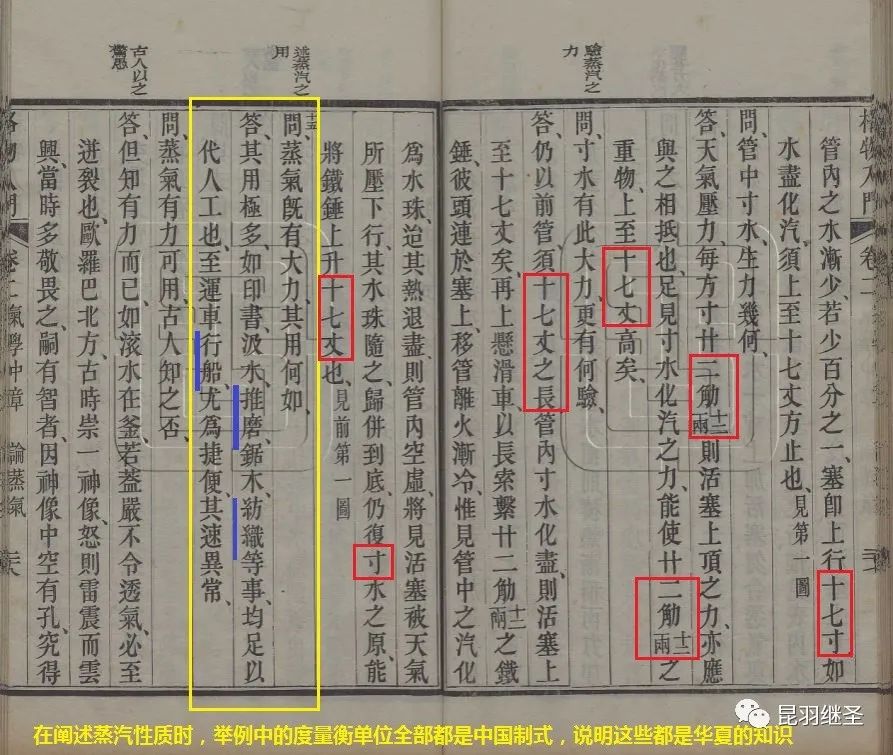 格物入門 卷二
驗蒸汽之力
管內之水漸少、若少百分之一、塞卽上行十七寸、如
水盡化汽、須上至十七丈方止也、見第一圖
問、管中寸水、生力幾何、
答、天氣壓力、每方寸廿二觔十二兩、則活塞上頂之力、亦應
與之相抵也、足見寸水化汽之力、能使廿二觔十二兩之
重物、上至十七丈高矣、
問、寸水有此大力、更有何驗、
答、仍以前管、須十七丈之長、管內寸水化盡、則活塞上
至十七丈矣、再上懸滑車、以長索繫廿二觔十二兩之鐵
錘、彼頭連於塞上、移管離火漸冷、惟見管中之汽化
爲水珠、迨其熱退盡、則管內空虛、將見活塞被天氣
所壓下行、其水珠隨之、歸併到底、仍復寸水之原、能
將鐵錘上升十七丈也、見前第一圖
述蒸汽之用
十五
問、蒸氣旣有大力、其用何如、
答、其用極多、如印書、汲水、推磨、鋸木、紡織等事、均足以
代人工也、至運車行船、尤爲捷便、其速異常、
問、蒸氣有力可用、古人知之否、
古人以之驚愚
答、但知有力而已、如滾水在釜、若蓋嚴不令透氣、必至
迸裂也、歐羅巴北方、古時崇一神像、怒則雷震而雲
興、當時多敬畏之、嗣有智者、因神像中空有孔、究得
格物入門 卷二 氣學中章 論蒸氣
昆羽继圣
在阐述蒸汽性质时，举例中的度量衡单位全部都是中国制式，说明这些都是华夏的知识